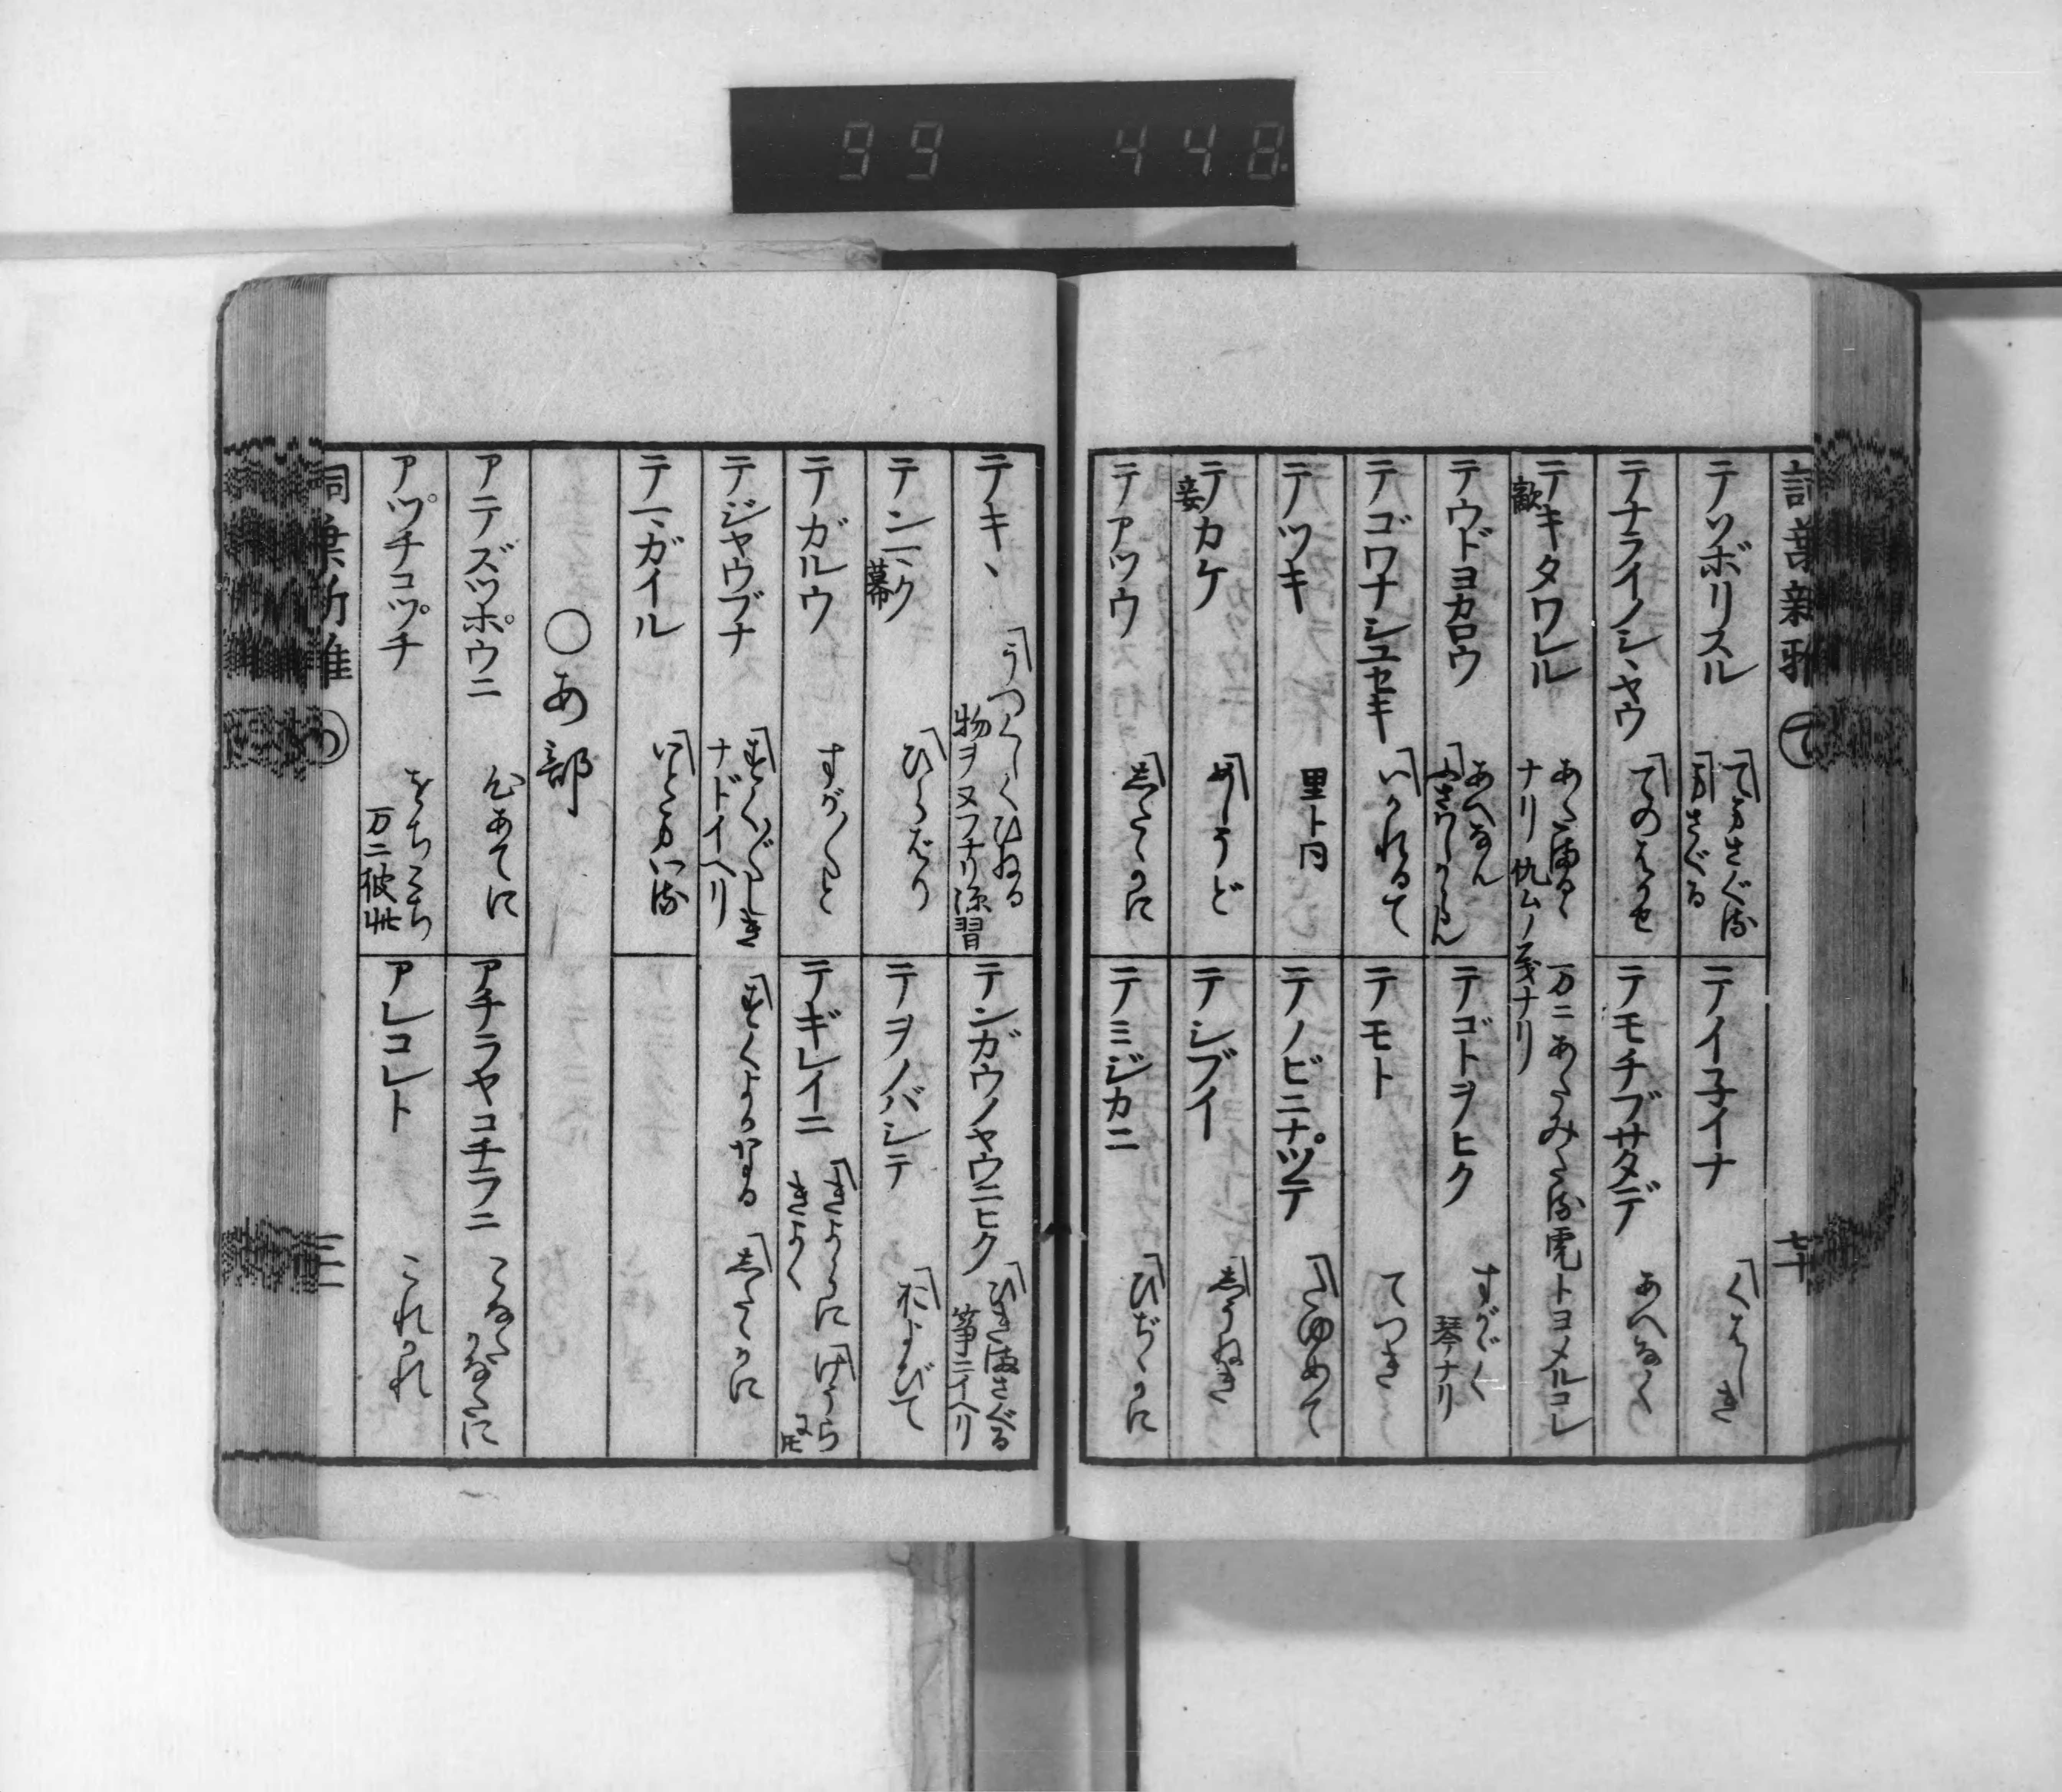 99 448
詞葉新雅 て 七十
テソボリスル 「てまさぐる 「まさぐる
テイ子イナ 「くはしき
テナライノシヽヤウ 「てのはかせ
テモチブサタデ あへなく
テキタワレル 敵 あたまるゝ 万ニあたみたる虎トヨメルコレ
ナリ仇ムノ義ナリ
テウドヨカロウ あへなん
テゴトヲヒク すがゞく 琴ナリ
テゴワナシユセキ 「いかれるて
テモト てつき
テツキ 里ト同
テノビニナツテ
テカケ 妾 「めしうど
テシブイ 「しうねき
テアツウ 「したゝかに
テミジカニ 「ひぢゝかに
テキヽ 「うつくしくひねる
物ヲヌフナリ源習
テンガウノヤウニヒク 「ひきまさぐる
箏ニイヘリ
テンマク 幕 「ひらばり
テヲノバシテ 「およびて
テガルウ すがゝと
テギレイニ 「きよらに 「けうら
きよく
テジヤウブナ
ナドイヘリ 「すくよかなる 「したゝかに
テマガイル 「いとまいる
〇あ部
アテズツポウニ 心あてに
アチラヤコチラニ こなたかなたに
アツチコツチ をちこち
万ニ彼此
アレコレト これかれ